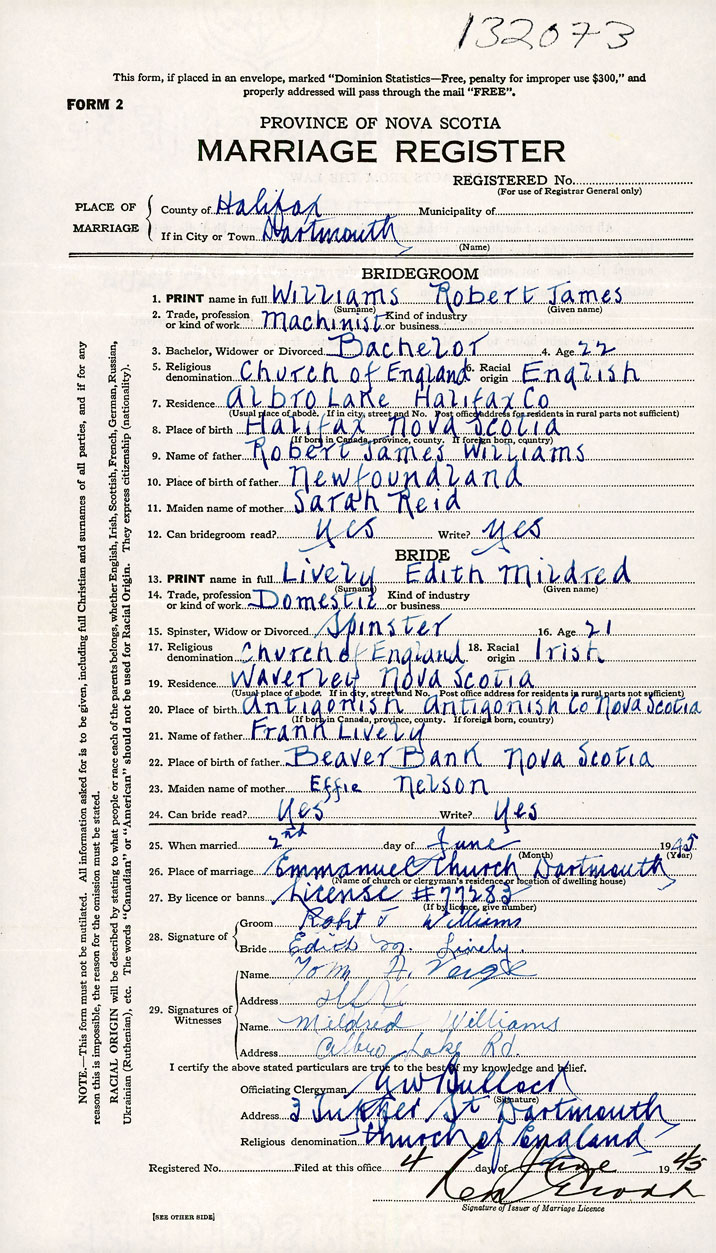 132073
This form, if placed in an envelope, marked “Dominion Statistics—Free, penalty for improper use $300,” and
properly addressed will pass through the mail “FREE”.
FORM 2
PROVINCE OF NOVA SCOTIA
MARRIAGE REGISTER
REGISTERED No.
(For use of Registrar General only)
PLACE OF MARRIAGE
County of Halifax Municipality of
If in City or Town Dartmouth
(Name)
BRIDEGROOM
1. PRINT name in full Williams Robert James
(Surname) (Given name)
2. Trade, profession or kind of work Machinist Kind of industry or business
3. Bachelor, Widower or Divorced Bachelor 4. Age 22
5. Religious denomination Church of England 6. Racial origin English
7. Residence Albro Lake Halifax Co
(Usual place of abode. If in city, street and No. Post office address for residents in rural parts not sufficient)
8. Place of birth Halifax Nova Scotia
(If born in Canada, province, county. If foreign born, country)
9. Name of father Robert James Williams
10. Place of birth of father Newfoundland
11. Maiden name of mother Sarah Reid
12. Can bridegroom read? Yes Write? Yes
BRIDE
13. PRINT name in full Lively Edith Mildred
(Surname) (Given name)
14. Trade, profession or kind of work Domestic Kind of industry or business
15. Spinster, Widow or Divorced Spinster 16. Age 21
17. Religious denomination Church of England 18. Racial origin Irish
19. Residence Waverley Nova Scotia
(Usual place of abode. If in city, street and No. Post office address for residents in rural parts not sufficient)
20. Place of birth Antigonish Antigonish Co Nova Scotia
(If born in Canada, province, county. If foreign born, country)
21. Name of father Frank Lively
22. Place of birth of father Beaver Bank Nova Scotia
23. Maiden name of mother Effie Nelson
24. Can bride read? Yes Write? Yes
25. When married 2nd day of June 1945
(Month) (Year)
26. Place of marriage Emmanuel Church Dartmouth
(Name of church or clergyman's residence or location of dwelling house)
27. By licence or banns License #77283
(If by licence, give number)
28. Signature of
Groom Robt J Williams
Bride Edith M. Lively.
29. Signatures of Witnesses
Name Tom A.
Address
Name Mildred Williams
Address Albro Lake Rd.
I certify the above stated particulars are true to the best of my knowledge and belief.
Officiating Clergyman GW Bullock
(Signature)
Address 3 St Dartmouth
Religious denomination Church of England
Registered No. Filed at this office 4 day of June 1945
Signature of Issuer of Marriage Licence
[SEE OTHER SIDE]
NOTE.—This form must not be mutilated. All information asked for is to be given, including full Christian and surnames of all parties, and if for any
reason this is impossible, the reason for the omission must be stated.
RACIAL ORIGIN will be described by stating to what people or race each of the parents belongs, whether English, Irish, Scottish, French, German, Russian,
Ukrainian (Ruthenian), etc. The words “Canadian” or “American” should not be used for Racial Origin. They express citizenship (nationality).